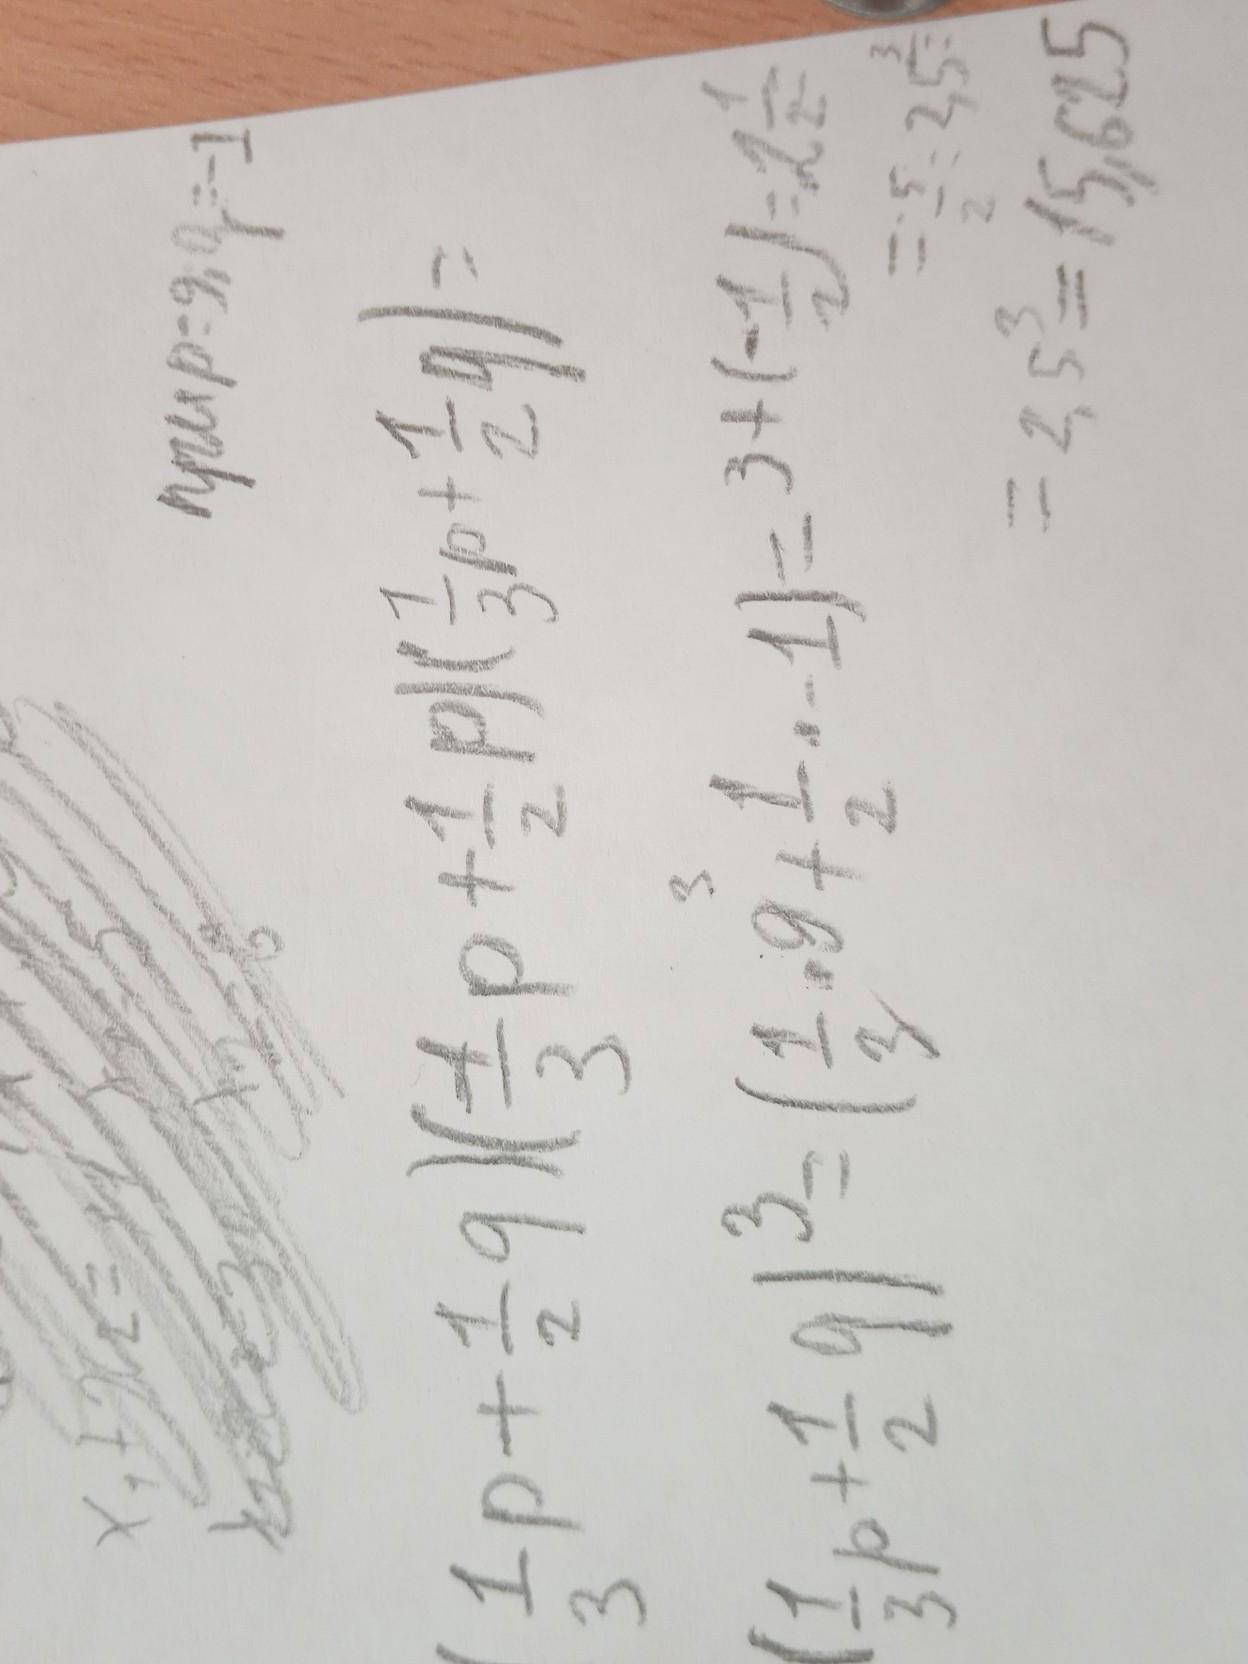 x₁ + x₂ =
при p = 9; q = -1
(1/3 p + 1/2 q)(1/3 p + 1/2 p)(1/3 p + 1/2 q) =
3
(1/3 p + 1/2 q)³ = (1/3 · 9 + 1/2 · -1) = 3 + (-1/2) = 2 1/2
= 5/2 = 2,5³ =
= 2,5³ = 15,625